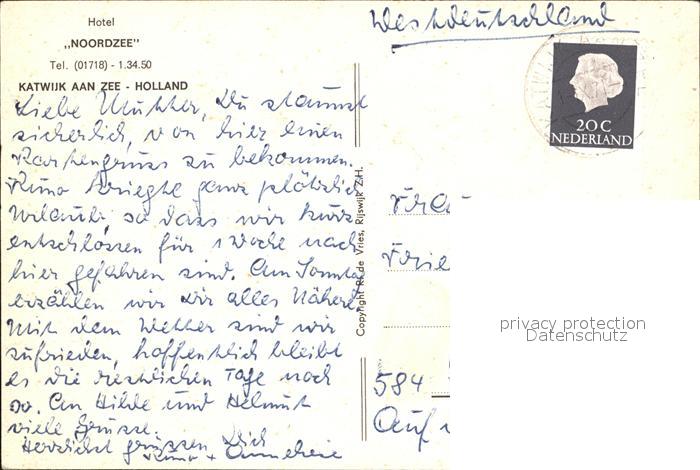 Hotel
„NOORDZEE"
Tel. (01718) - 1.34.50
KATWIJK AAN ZEE - HOLLAND
Liebe Mutter, Du staunst
sicherlich, von hier einen
Kartengruss zu bekommen.
Kuno kriegte ganz plötzlich
Urlaub, so dass wir kurz
entschlossen für 1 Woche nach
hier gefahren sind. Am Sonntag
erzählen wir Dir alles Nähere.
Mit dem Wetter sind wir
zufrieden, hoffentlich bleibt
es die restlichen Tage noch
so. An Hilde und Helmut
viele Grüsse.
Herzlichst grüssen Dich
Kuno + Annemarie
Copyright R. de Vries, Rijswijk Z.H.
Westdeutschland
20 C
NEDERLAND
Frau
Frie
584
Auf
privacy protection
Datenschutz